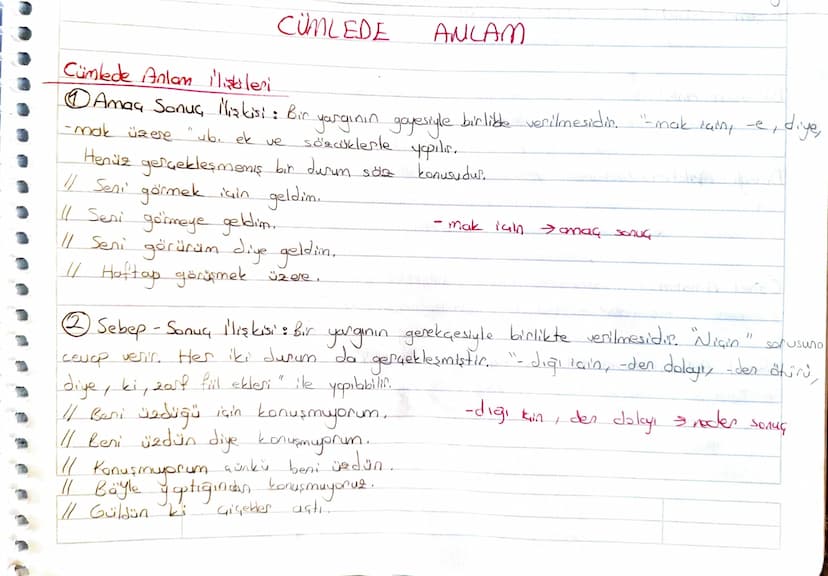 CÜMLEDE ANLAM
Cümlede Anlam İlişkileri
① Amaç Sonuç İlişkisi : Bir yargının gayesiyle birlikte verilmesidir. "-mak için, -e, diye,
-mak üzere" vb. ek ve sözcüklerle yapılır.
Henüz gerçekleşmemiş bir durum söz konusudur.
// Seni görmek için geldim.
// Seni görmeye geldim.
-mak için → amaç sonuç
// Seni görürüm diye geldim.
// Haftaya görüşmek üzere.
② Sebep - Sonuç İlişkisi : Bir yargının gerekçesiyle birlikte verilmesidir. "Niçin" sorusuna
cevap verir. Her iki durum da gerçekleşmiştir. "-dığı için, -den dolayı, -den ötürü,
diye, ki, zarf fiil ekleri" ile yapılabilir.
// Beni üzdüğü için konuşmuyorum.
-dığı için, den dolayı → neden sonuç
// Beni üzdün diye konuşmuyorum.
// Konuşmuyorum çünkü beni üzdün.
// Böyle yaptığından konuşmuyoruz.
// Güldün ki çiçekler açtı.